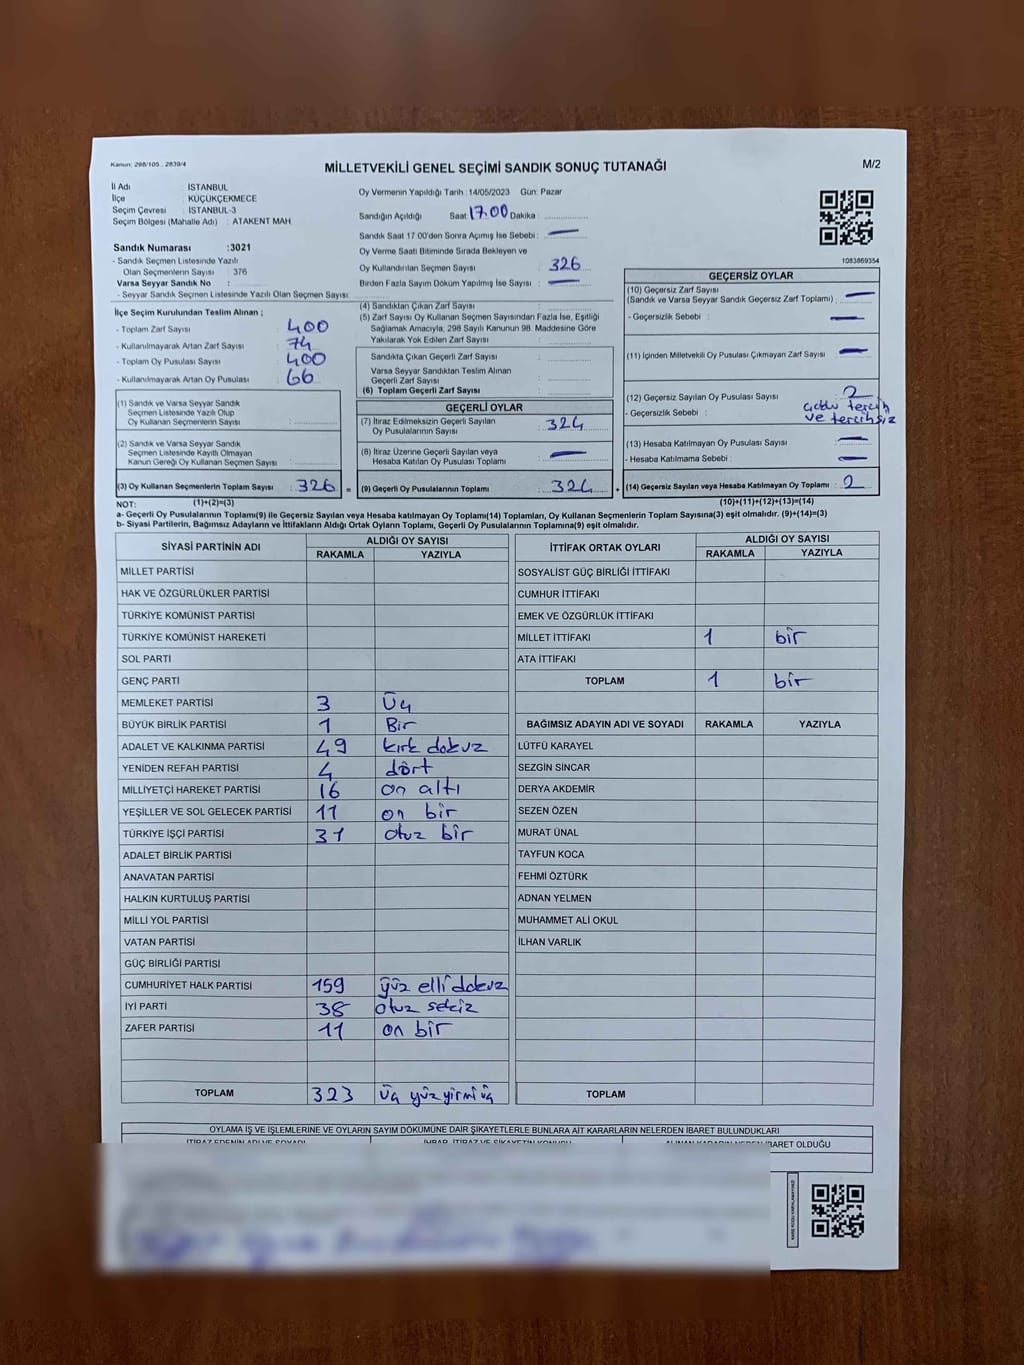 Kanun: 298/105 , 2839/4
MİLLETVEKİLİ GENEL SEÇİMİ SANDIK SONUÇ TUTANAĞI
M/2
İl Adı : İSTANBUL
İlçe : KÜÇÜKÇEKMECE
Seçim Çevresi : İSTANBUL-3
Seçim Bölgesi (Mahalle Adı) : ATAKENT MAH.
Sandık Numarası :3021
- Sandık Seçmen Listesinde Yazılı
Olan Seçmenlerin Sayısı : 376
Varsa Seyyar Sandık No :
- Seyyar Sandık Seçmen Listesinde Yazılı Olan Seçmen Sayısı:
Oy Vermenin Yapıldığı Tarih :14/05/2023 Gün: Pazar
Sandığın Açıldığı Saat 17:00 Dakika :
Sandık Saat 17:00'den Sonra Açımış İse Sebebi : —
Oy Verme Saati Bitiminde Sırada Bekleyen ve
Oy Kullandırılan Seçmen Sayısı 326
Birden Fazla Sayım Döküm Yapılmış İse Sayısı : —
1083869354
İlçe Seçim Kurulundan Teslim Alınan ;
- Toplam Zarf Sayısı : 400
- Kullanılmayarak Artan Zarf Sayısı : 74
- Toplam Oy Pusulası Sayısı : 400
- Kullanılmayarak Artan Oy Pusulası : 66
(1) Sandık ve Varsa Seyyar Sandık
Seçmen Listesinde Yazılı Olup
Oy Kullanan Seçmenlerin Sayısı :
(2) Sandık ve Varsa Seyyar Sandık
Seçmen Listesinde Kayıtlı Olmayan
Kanun Gereği Oy Kullanan Seçmen Sayısı :
(3) Oy Kullanan Seçmenlerin Toplam Sayısı : 326 =
(4) Sandıktan Çıkan Zarf Sayısı :
(5) Zarf Sayısı Oy Kullanan Seçmen Sayısından Fazla İse, Eşitliği
Sağlamak Amacıyla, 298 Sayılı Kanunun 98. Maddesine Göre
Yakılarak Yok Edilen Zarf Sayısı :
Sandıkta Çıkan Geçerli Zarf Sayısı :
Varsa Seyyar Sandıktan Teslim Alınan
Geçerli Zarf Sayısı :
(6) Toplam Geçerli Zarf Sayısı :
GEÇERLİ OYLAR
(7) İtiraz Edilmeksizin Geçerli Sayılan
Oy Pusulalarının Sayısı : 324
(8) İtiraz Üzerine Geçerli Sayılan veya
Hesaba Katılan Oy Pusulası Toplamı : —
(9) Geçerli Oy Pusulalarının Toplamı : 324 +
GEÇERSİZ OYLAR
(10) Geçersiz Zarf Sayısı
(Sandık ve Varsa Seyyar Sandık Geçersiz Zarf Toplamı) : —
- Geçersizlik Sebebi : —
(11) İçinden Milletvekili Oy Pusulası Çıkmayan Zarf Sayısı : —
(12) Geçersiz Sayılan Oy Pusulası Sayısı : 2
- Geçersizlik Sebebi : tercih
ve tercihsiz
(13) Hesaba Katılmayan Oy Pusulası Sayısı : —
- Hesaba Katılmama Sebebi : —
(14) Geçersiz Sayılan veya Hesaba Katılmayan Oy Toplamı : 2
NOT: (1)+(2)=(3) (10)+(11)+(12)+(13)=(14)
a- Geçerli Oy Pusulalarının Toplamı(9) ile Geçersiz Sayılan veya Hesaba katılmayan Oy Toplamı(14) Toplamları, Oy Kullanan Seçmenlerin Toplam Sayısına(3) eşit olmalıdır. (9)+(14)=(3)
b- Siyasi Partilerin, Bağımsız Adayların ve İttifakların Aldığı Ortak Oyların Toplamı, Geçerli Oy Pusulalarının Toplamına(9) eşit olmalıdır.
SİYASİ PARTİNİN ADI ALDIĞI OY SAYISI
RAKAMLA YAZIYLA
MİLLET PARTİSİ
HAK VE ÖZGÜRLÜKLER PARTİSİ
TÜRKİYE KOMÜNİST PARTİSİ
TÜRKİYE KOMÜNİST HAREKETİ
SOL PARTİ
GENÇ PARTİ
MEMLEKET PARTİSİ 3 Üç
BÜYÜK BİRLİK PARTİSİ 1 Bir
ADALET VE KALKINMA PARTİSİ 49 kırk dokuz
YENİDEN REFAH PARTİSİ 4 dört
MİLLİYETÇİ HAREKET PARTİSİ 16 on altı
YEŞİLLER VE SOL GELECEK PARTİSİ 11 on bir
TÜRKİYE İŞÇİ PARTİSİ 31 otuz bir
ADALET BİRLİK PARTİSİ
ANAVATAN PARTİSİ
HALKIN KURTULUŞ PARTİSİ
MİLLİ YOL PARTİSİ
VATAN PARTİSİ
GÜÇ BİRLİĞİ PARTİSİ
CUMHURİYET HALK PARTİSİ 159 yüz elli dokuz
İYİ PARTİ 38 otuz sekiz
ZAFER PARTİSİ 11 on bir
TOPLAM 323 üç yüz yirmi üç
İTTİFAK ORTAK OYLARI ALDIĞI OY SAYISI
RAKAMLA YAZIYLA
SOSYALİST GÜÇ BİRLİĞİ İTTİFAKI
CUMHUR İTTİFAKI
EMEK VE ÖZGÜRLÜK İTTİFAKI
MİLLET İTTİFAKI 1 bir
ATA İTTİFAKI
TOPLAM 1 bir
BAĞIMSIZ ADAYIN ADI VE SOYADI RAKAMLA YAZIYLA
LÜTFÜ KARAYEL
SEZGİN SİNCAR
DERYA AKDEMİR
SEZEN ÖZEN
MURAT ÜNAL
TAYFUN KOCA
FEHMİ ÖZTÜRK
ADNAN YELMEN
MUHAMMET ALİ OKUL
İLHAN VARLIK
TOPLAM
OYLAMA İŞ VE İŞLEMLERİNE VE OYLARIN SAYIM DÖKÜMÜNE DAİR ŞİKAYETLERLE BUNLARA AİT KARARLARIN NELERDEN İBARET BULUNDUKLARI
İTİRAZ EDENİN ADI VE SOYADI İHBAR, İTİRAZ VE ŞİKAYETİN KONUSU ALINAN KARARIN NEDEN İBARET OLDUĞU